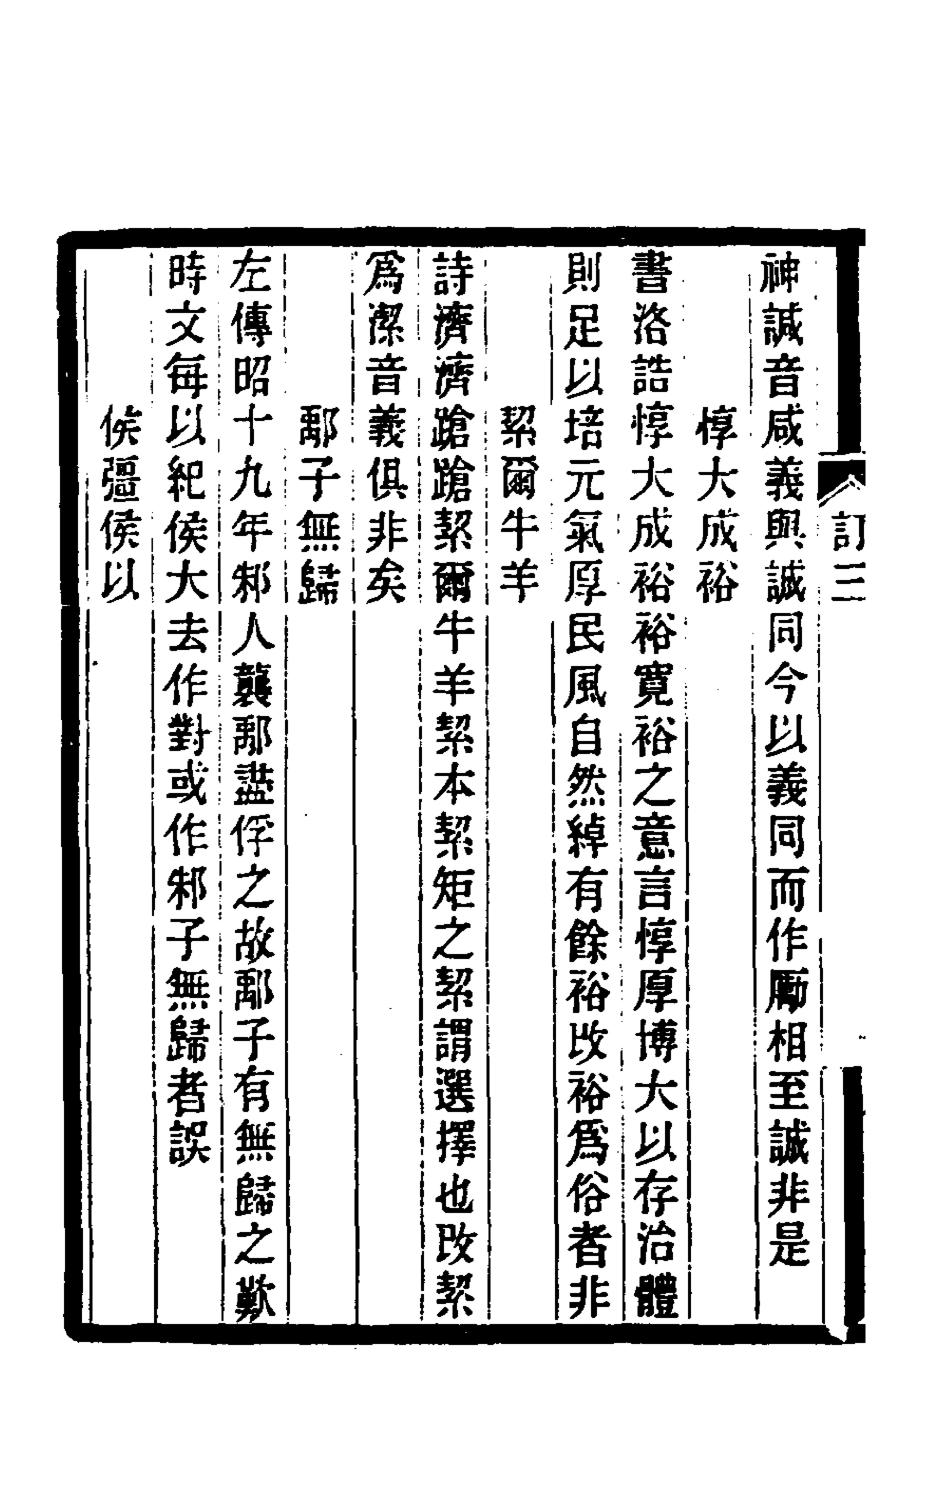 訂三
神諴音咸義與誠同今以義同而作勵相至誠非是
惇大成裕
書洛誥惇大成裕裕寬裕之意言惇厚博大以存治體
則足以培元氣厚民風自然綽有餘裕改裕爲俗者非
絜爾牛羊
詩濟濟蹌蹌絜爾牛羊絜本絜矩之絜謂選擇也改絜
爲潔音義俱非矣
鄅子無歸
左傳昭十九年邾人襲鄅盡俘之故鄅子有無歸之歎
時文每以紀侯大去作對或作邾子無歸者誤
侯彊侯以